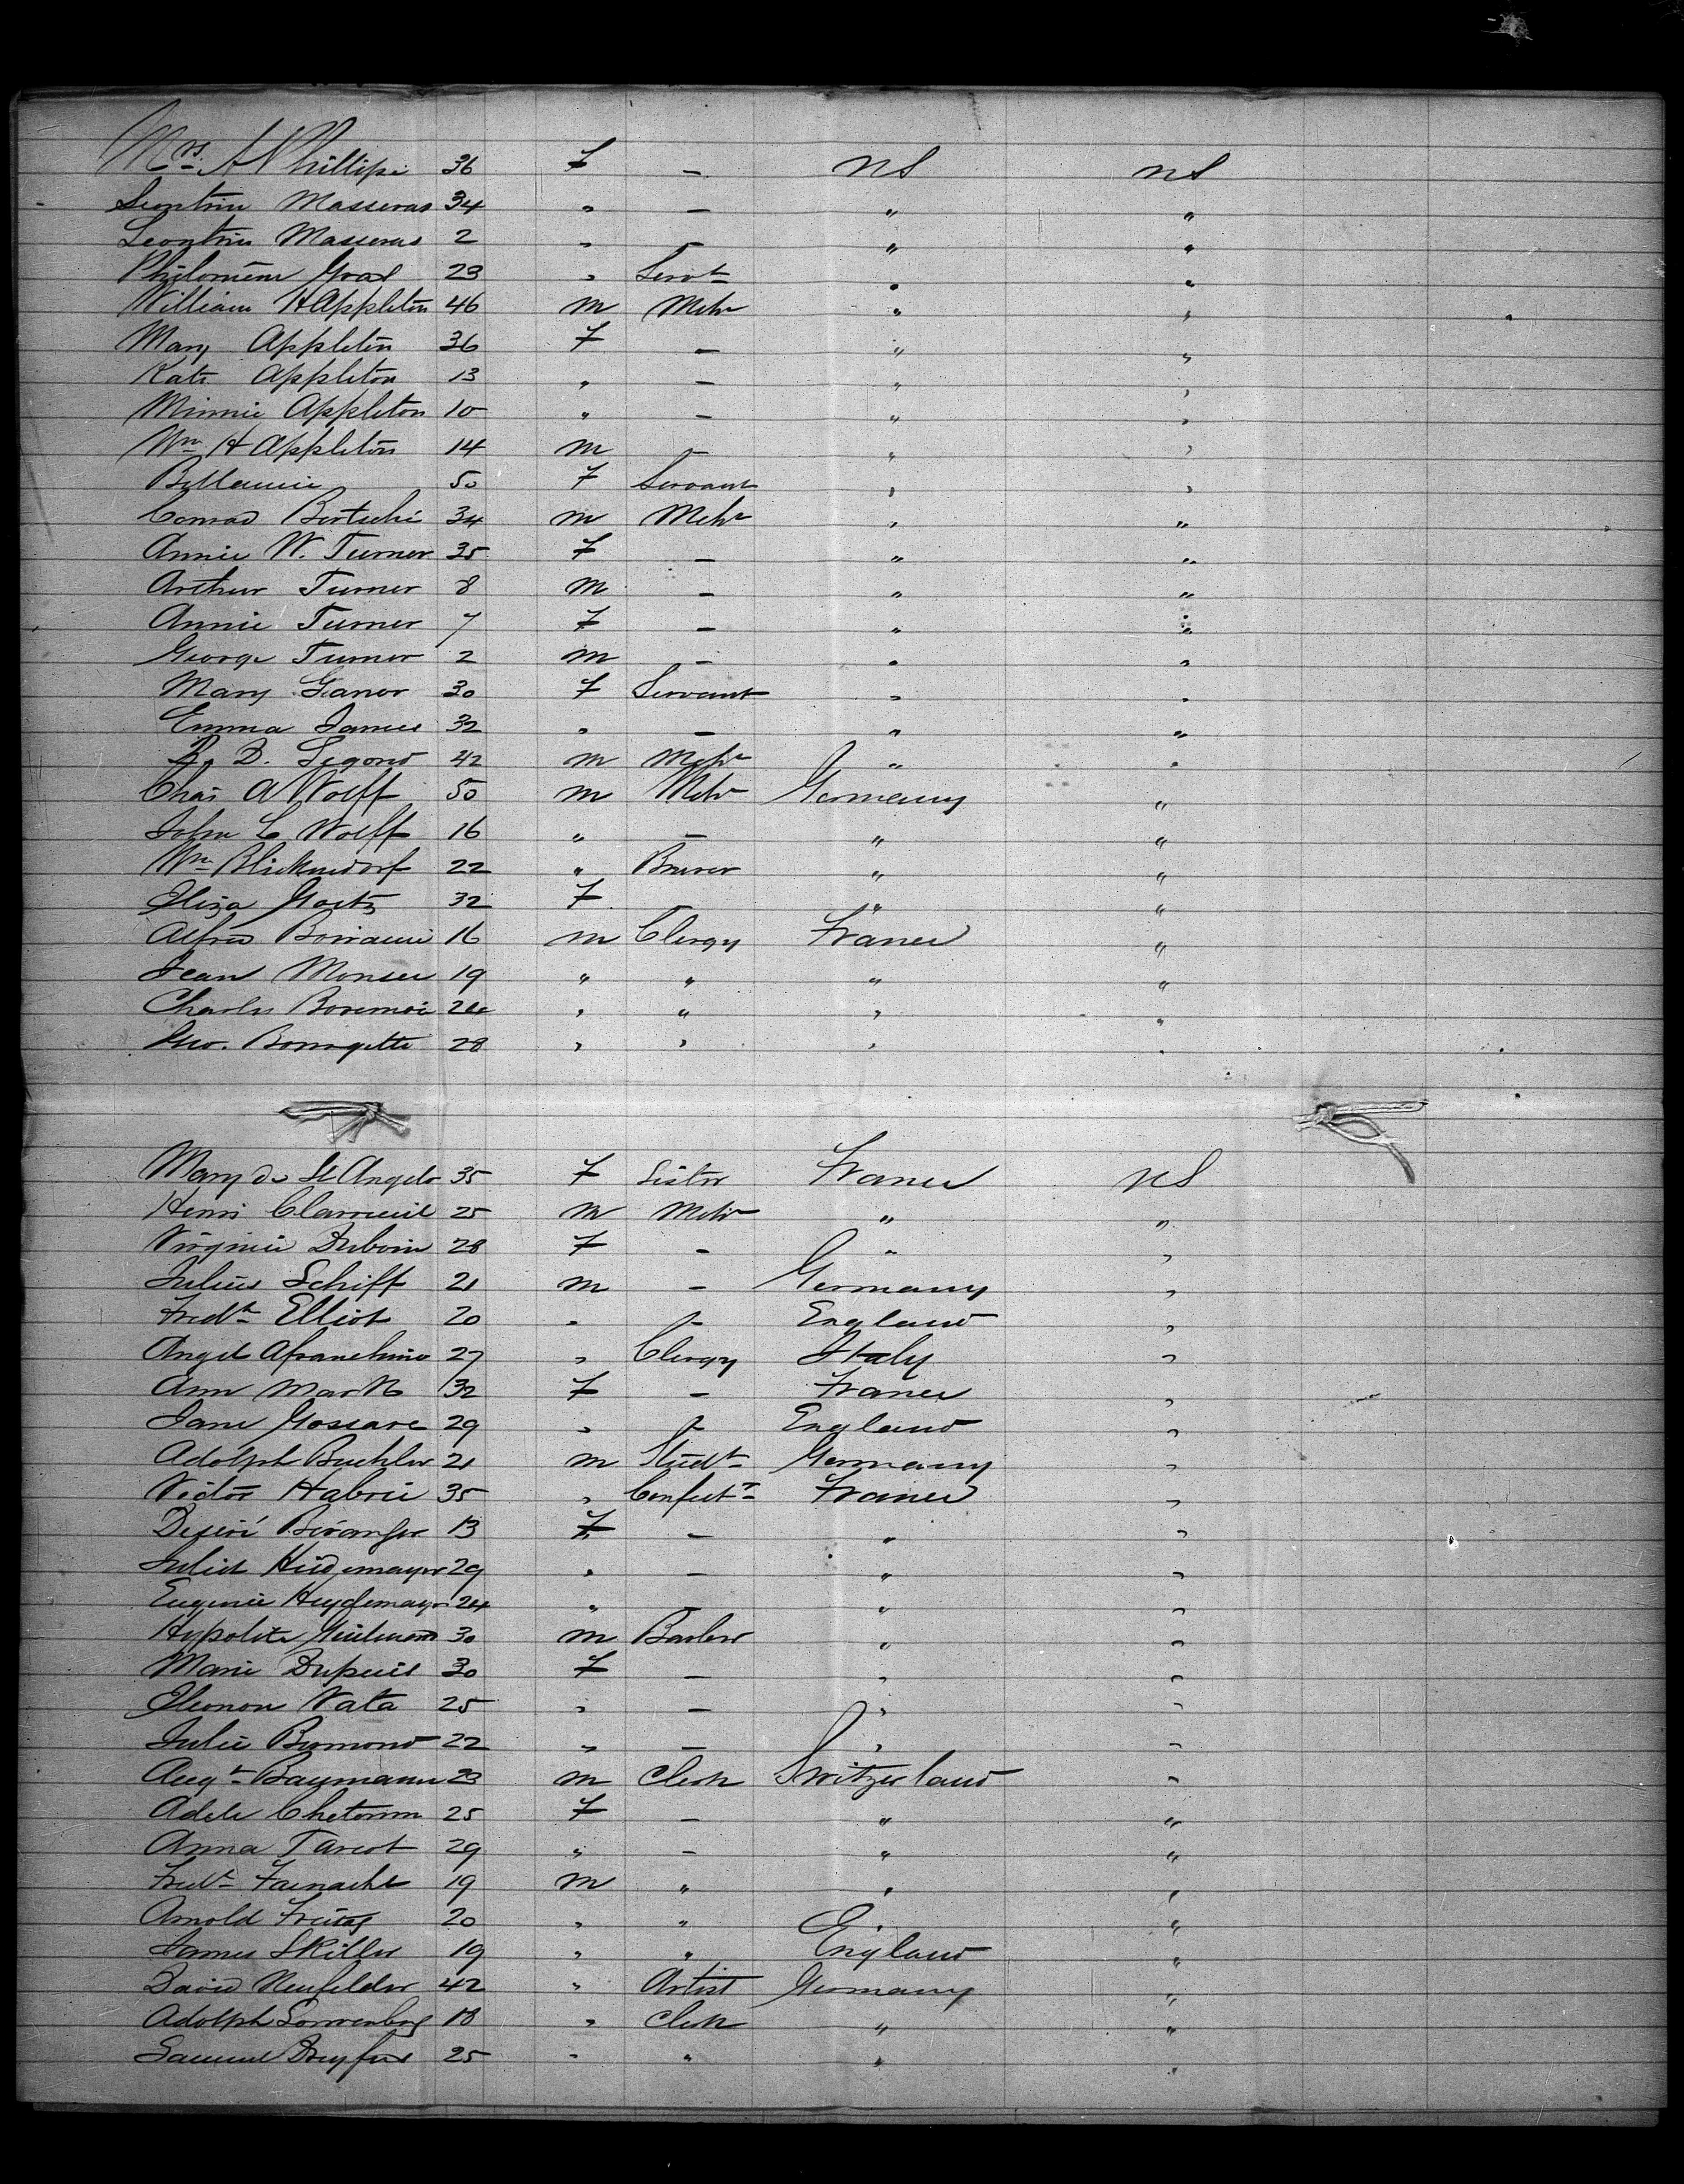 Mrs. A Phillipi 36 F – US US
Leontine Masseras 34 " – " "
Leontine Masseras 2 " – " "
Philomène Goax 23 " Servt " "
William H Appleton 46 M Mcht " "
Mary Appleton 36 F – " "
Kate Appleton 13 " – " "
Minnie Appleton 10 " – " "
Wm H Appleton 14 M – " "
50 F Servant " "
Conrad Bertschi 34 M Mcht " "
Annie W. Turner 35 F – " "
Arthur Turner 8 M – " "
Annie Turner 7 F – " "
George Turner 2 M – " "
Mary Ganor 30 F Servant " "
Emma James 32 " – " "
D. Segond 42 M Mcht " "
Chas A Wolff 50 M Mcht Germany "
John C Wolff 16 " – " "
Wm Blickendorf 22 " Brewer " "
Eliza Goetz 32 F " "
Alfred 16 M Clergy France "
Jean Monsee 19 " " " "
Charles 24 " " " "
Geo. Bourgette 28 " " " "
Mary de St Angelo 35 F Sister France US
Henri 25 M Mcht " "
Virginie Duboin 28 F – " "
Julius Schiff 21 M – Germany "
Fredk Elliot 20 " – England "
Angel Afranchino 27 " Clergy Italy "
Ann Mark 32 F – France "
Jane Gossare 29 " – England "
Adolph Buehler 21 M Studt Germany "
Victor Habrie 35 " Confectr France "
Desiré Béranger 13 F – " "
Juliet Heidemayer 29 " – " "
Eugenie Heydemayer 24 " – " "
Hypolite 30 M Barber " "
Marie Dupuis 30 F – " "
Eleonor Vata 25 " – " "
Julie Bumond 22 " – " "
Augt Baymann 23 M Clerk Switzerland "
Adele 25 F – " "
Anna Tarcot 29 " – " "
Fredk Faenacht 19 M " " "
Arnold Freitag 20 " " " "
James Skiller 19 " " England "
David Neufelder 42 " Artist Germany "
Adolph Sonnenberg 18 " Clerk " "
Samuel Dreyfus 25 " " " "